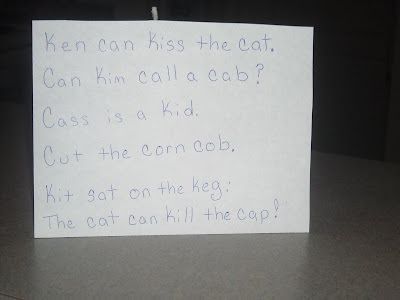 Ken can kiss the cat.
Can Kim call a cab?
Cass is a kid.
Cut the corn cob.
Kit sat on the keg:
The cat can kill the cap!